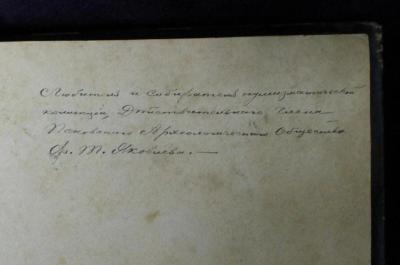 Любителя и собирателя нумизматической
коллекціи, Дѣйствительнаго члена
Псковскаго Археологическаго Общества
Ф. Т. Яковлева. —